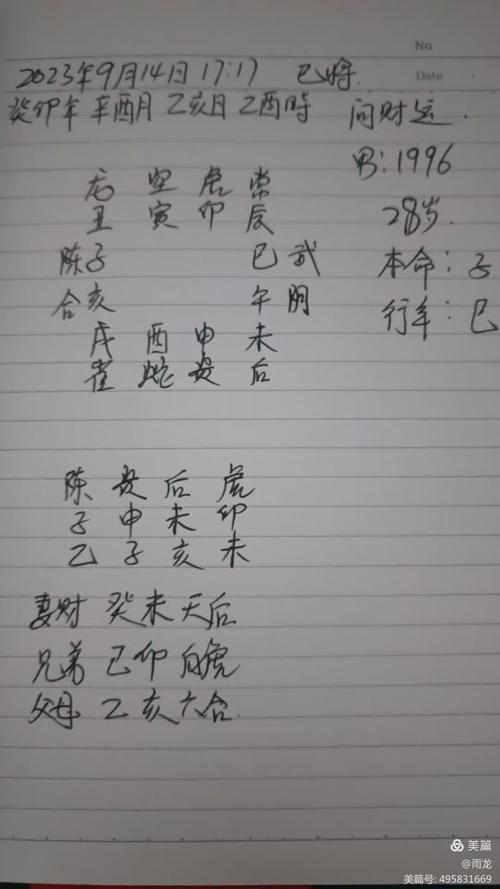 No.
Date
2023年9月14日 17:17 巳将
癸卯年 辛酉月 乙亥日 乙酉時 问财运.
男:1996
28岁.
本命:子
行年:巳
龙 空 虎 常
丑 寅 卯 辰
陈子 巳武
合亥 午阴
戌 酉 申 未
雀 蛇 贵 后
陈 贵 后 虎
子 申 未 卯
乙 子 亥 未
妻财 癸未天后
兄弟 己卯白虎
父母 乙亥六合.
美篇
@雨龙
美篇号: 495831669